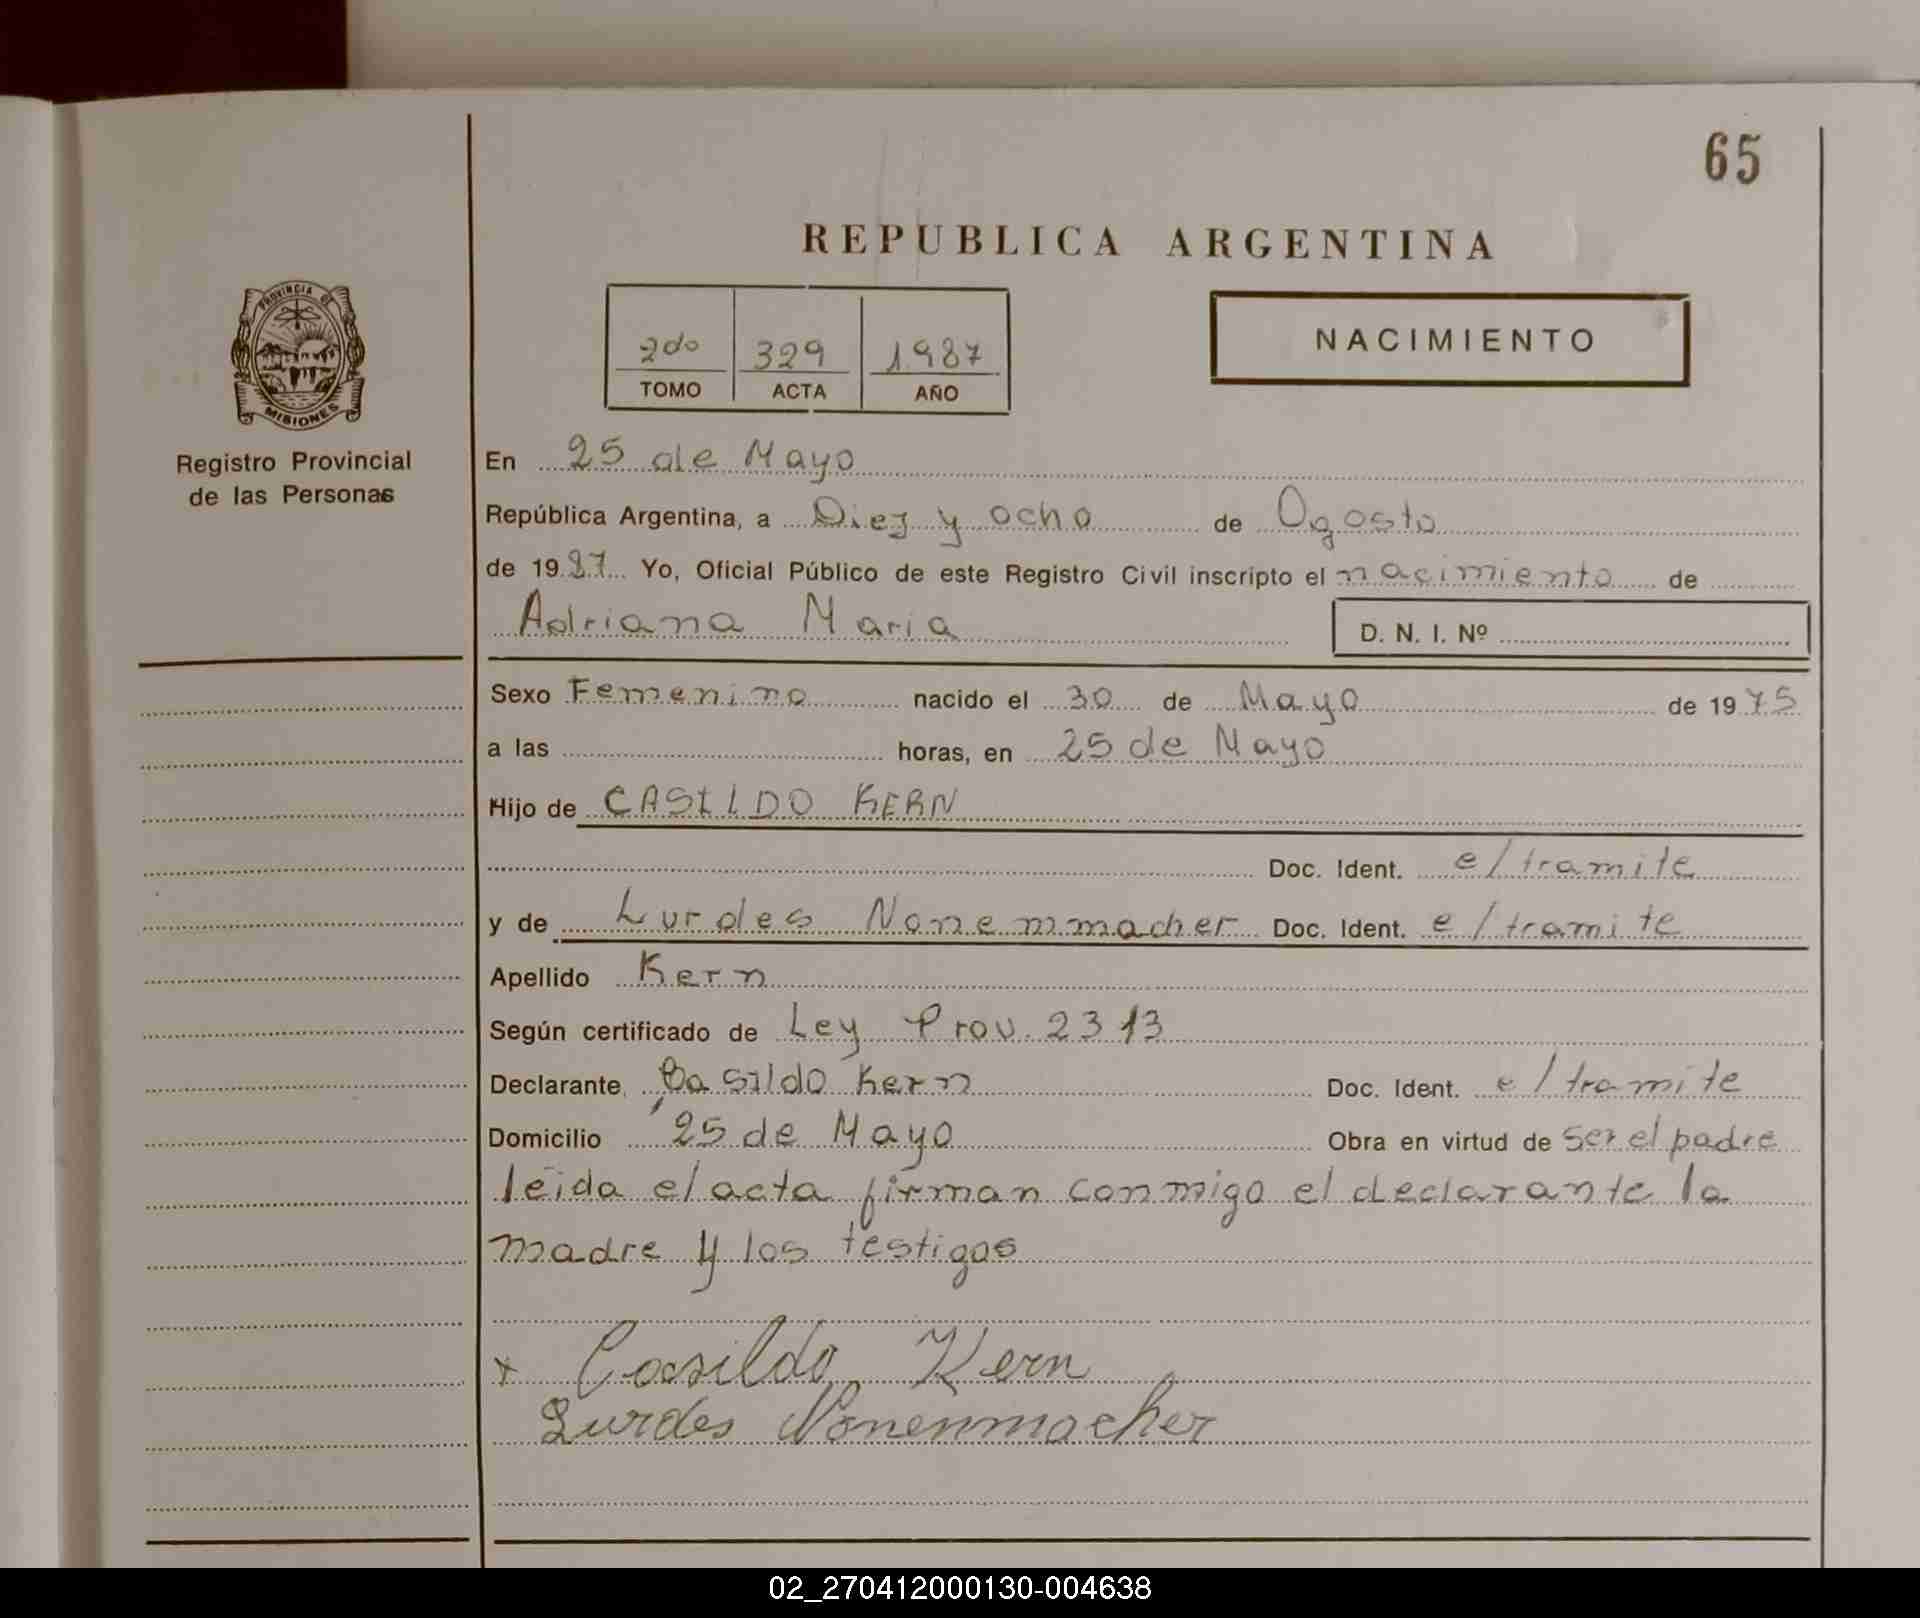 65
REPUBLICA ARGENTINA
PROVINCIA DE
MISIONES
Registro Provincial
de las Personas
2do 329 1.987
TOMO ACTA AÑO
NACIMIENTO
En 25 de Mayo
República Argentina, a Diez y ocho de Agosto
de 1987 Yo, Oficial Público de este Registro Civil inscripto el nacimiento de
Adriana Maria D. N. I. Nº
Sexo Femenino nacido el 30 de Mayo de 1975
a las horas, en 25 de Mayo
Hijo de CASILDO KERN
Doc. Ident. e/tramite
y de Lurdes Nonemmacher Doc. Ident. e/tramite
Apellido Kern
Según certificado de Ley Prov. 2313
Declarante, Casildo Kern Doc. Ident. e/tramite
Domicilio 25 de Mayo Obra en virtud de ser el padre
leida el acta firman conmigo el declarante la
madre y los testigos
x Casildo Kern
Lurdes Nonenmacher
02_270412000130-004638